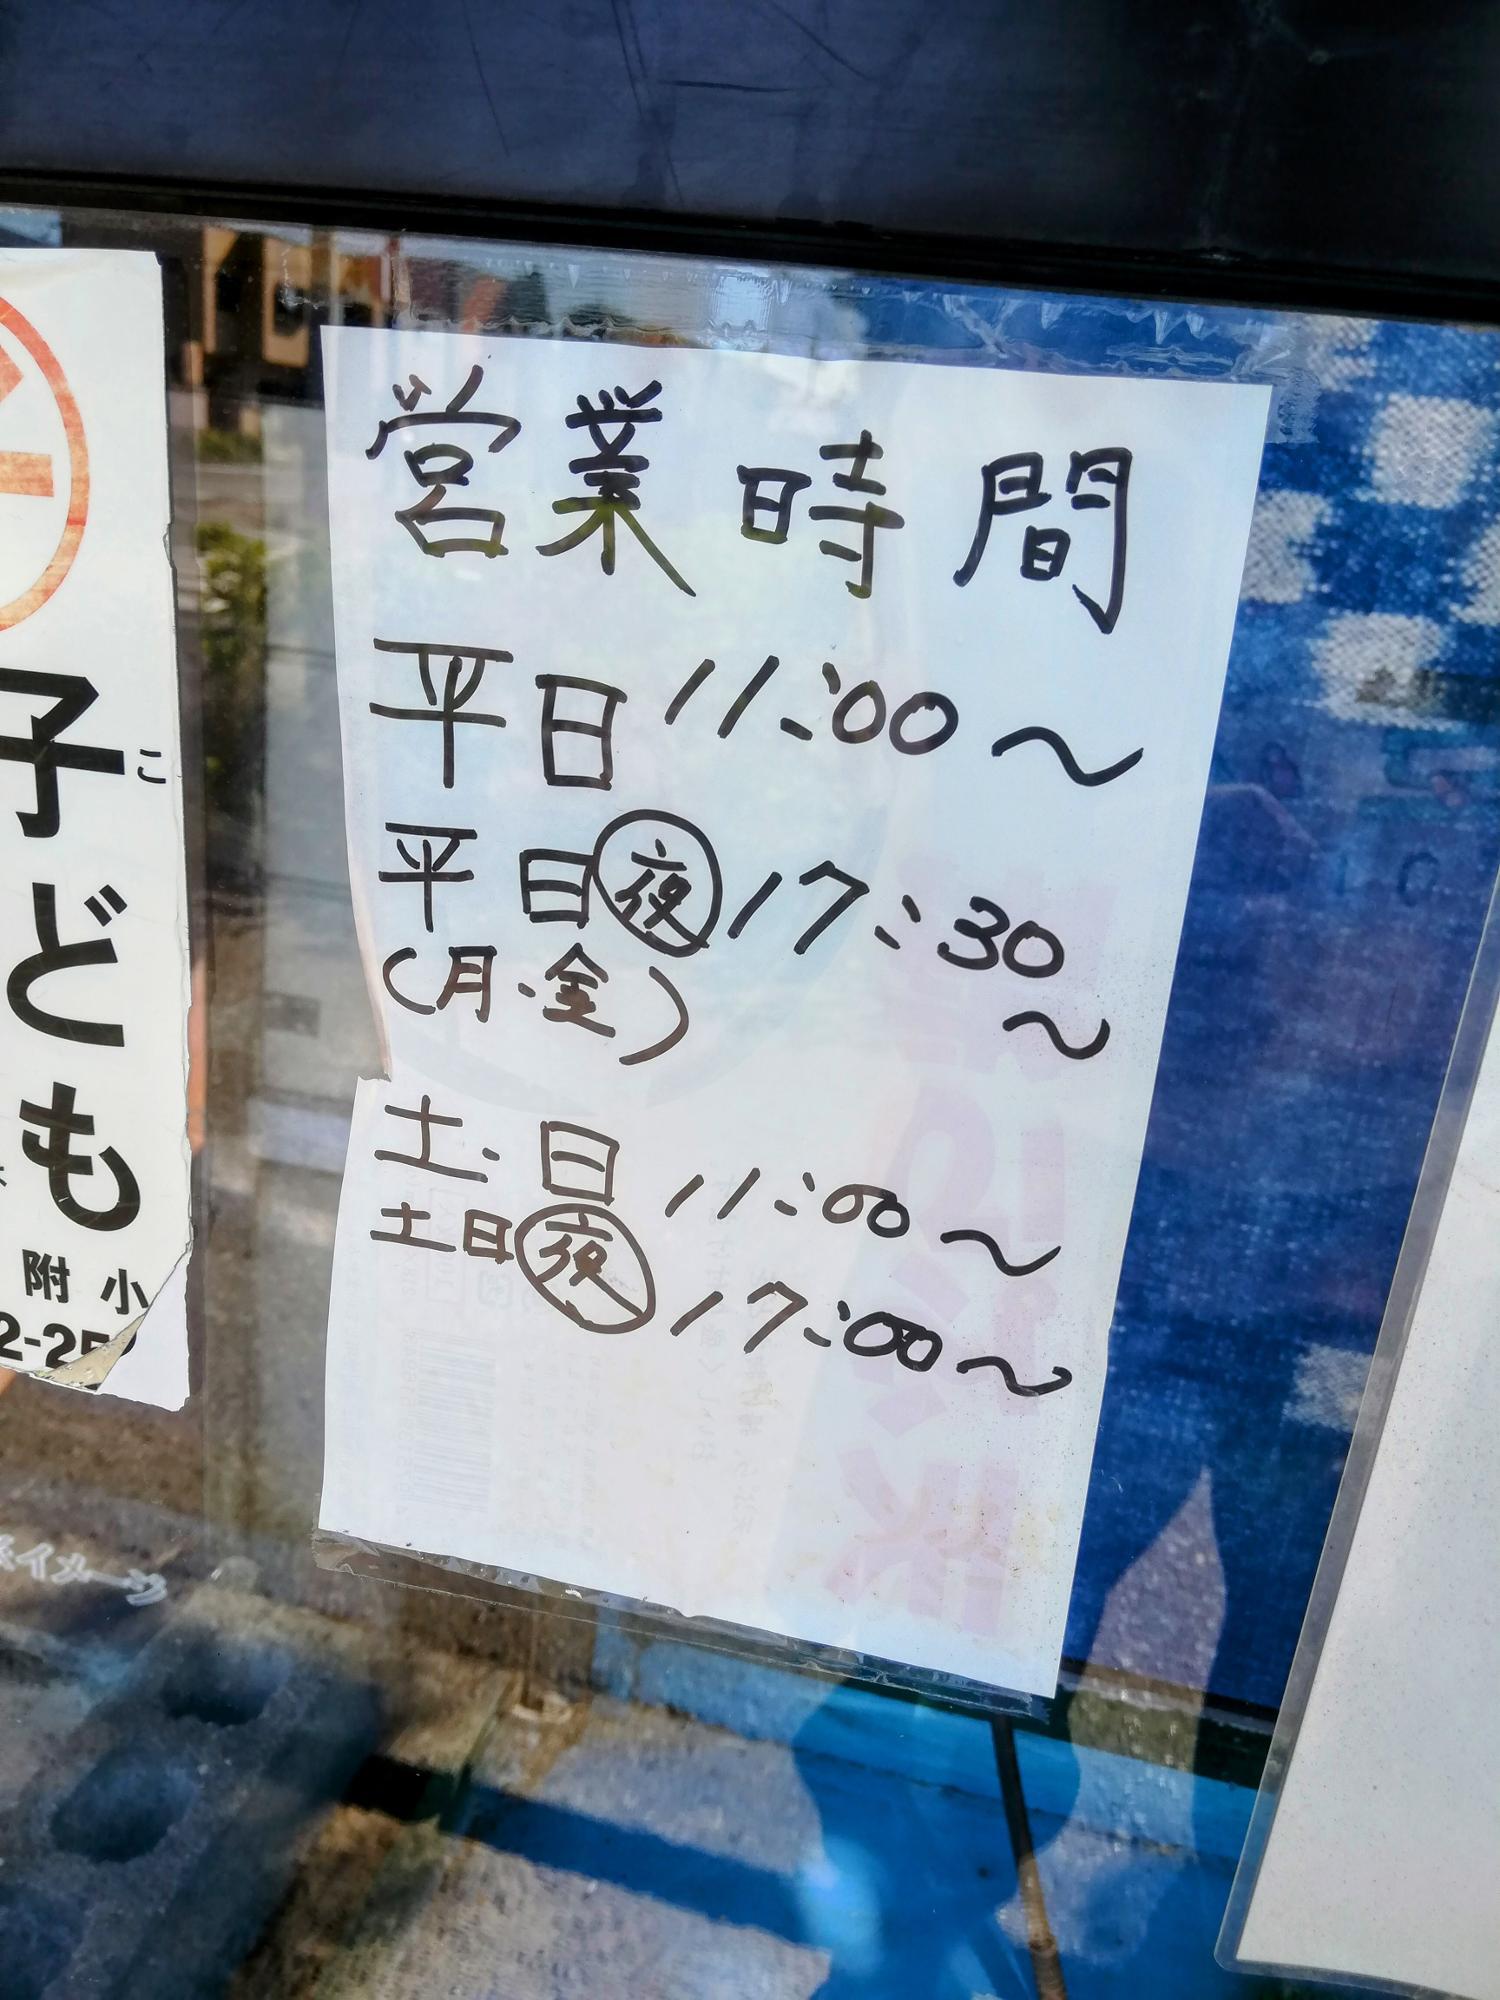 営業時間
平日 11:00〜
平日夜 17:30
(月・金) 〜
土・日 11:00〜
土日夜 17:00〜
子ども
こ
附小
イメージ